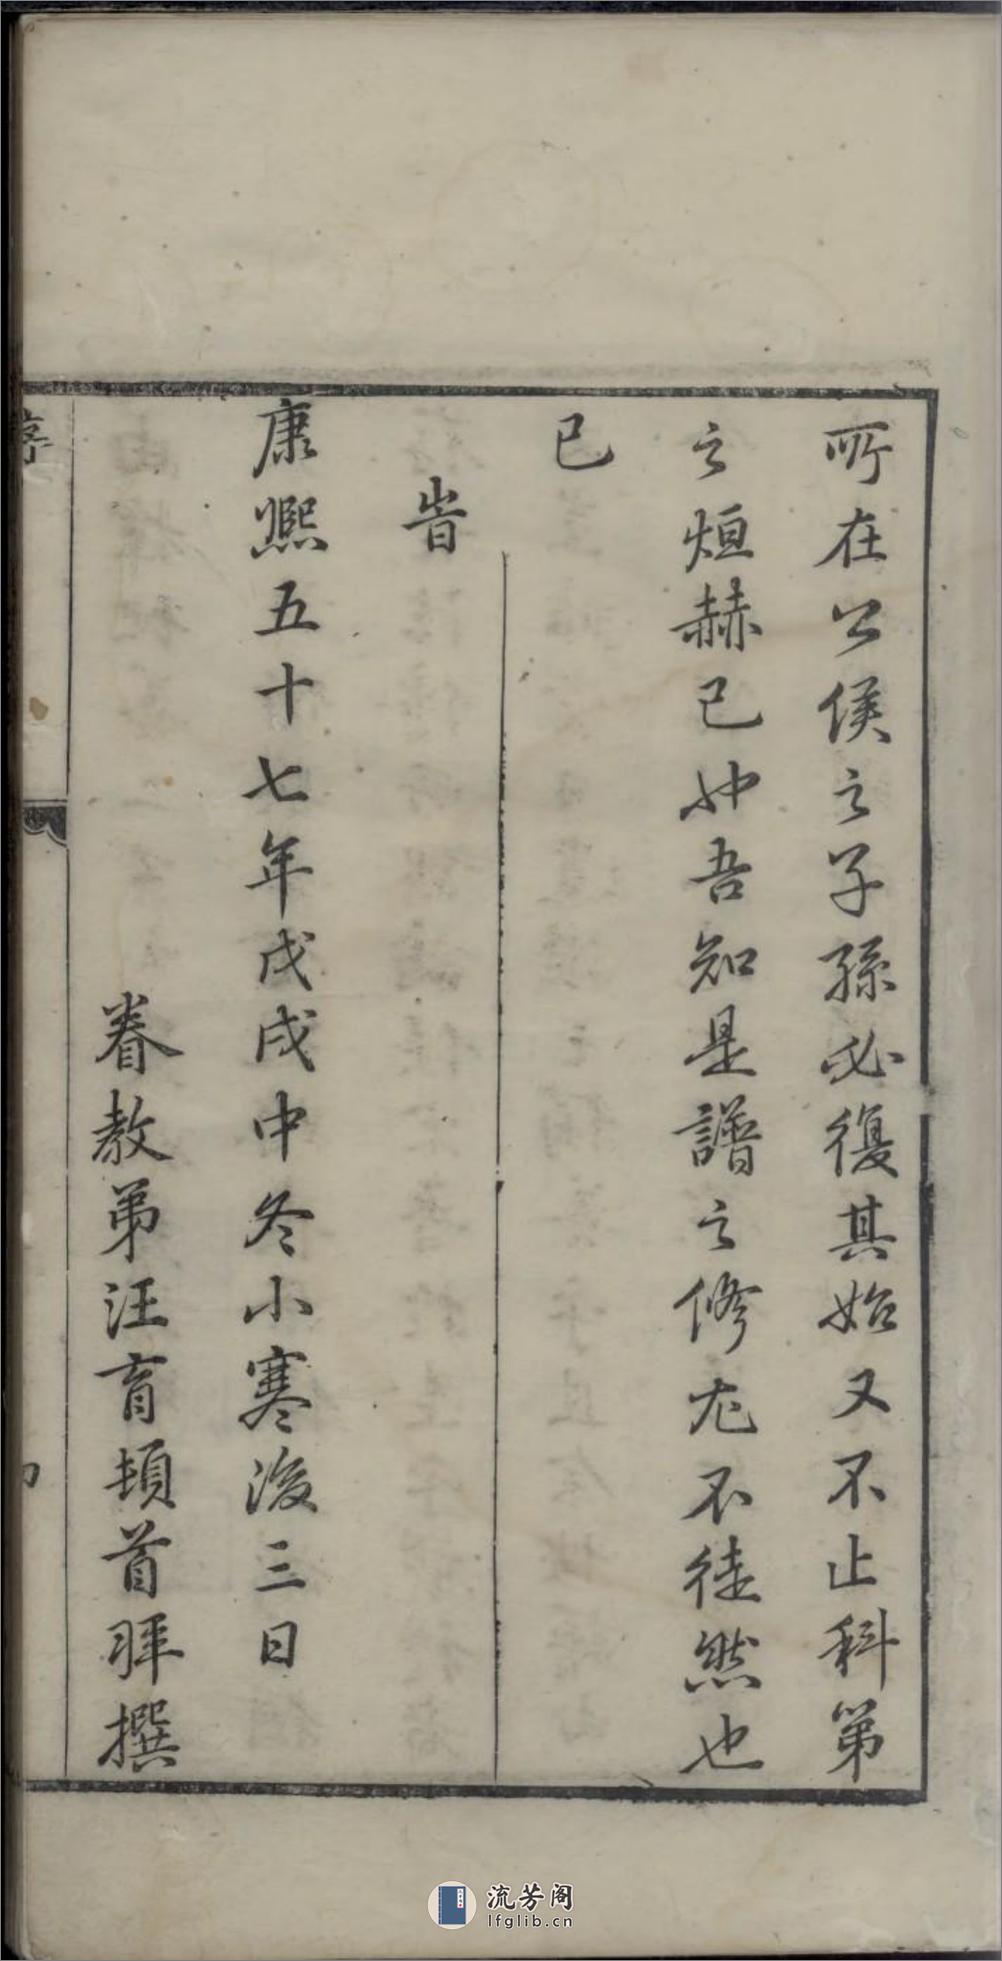 所在公侯之子孫必復其始又不止科第
之烜赫已也吾知是譜之修尤不徒然也
已
旹
康熈五十七年戊戌中冬小寒後三日
眷教弟汪育頓首拜撰
序
流芳阁
lfglib.cn